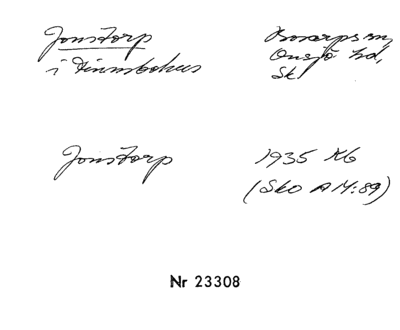 Jonstorp
i Finnsbohus
Bosarps sn,
Onsjö hd,
Sk
Jonstorp
1935 Kb
(Sko A M:89)
Nr 23308